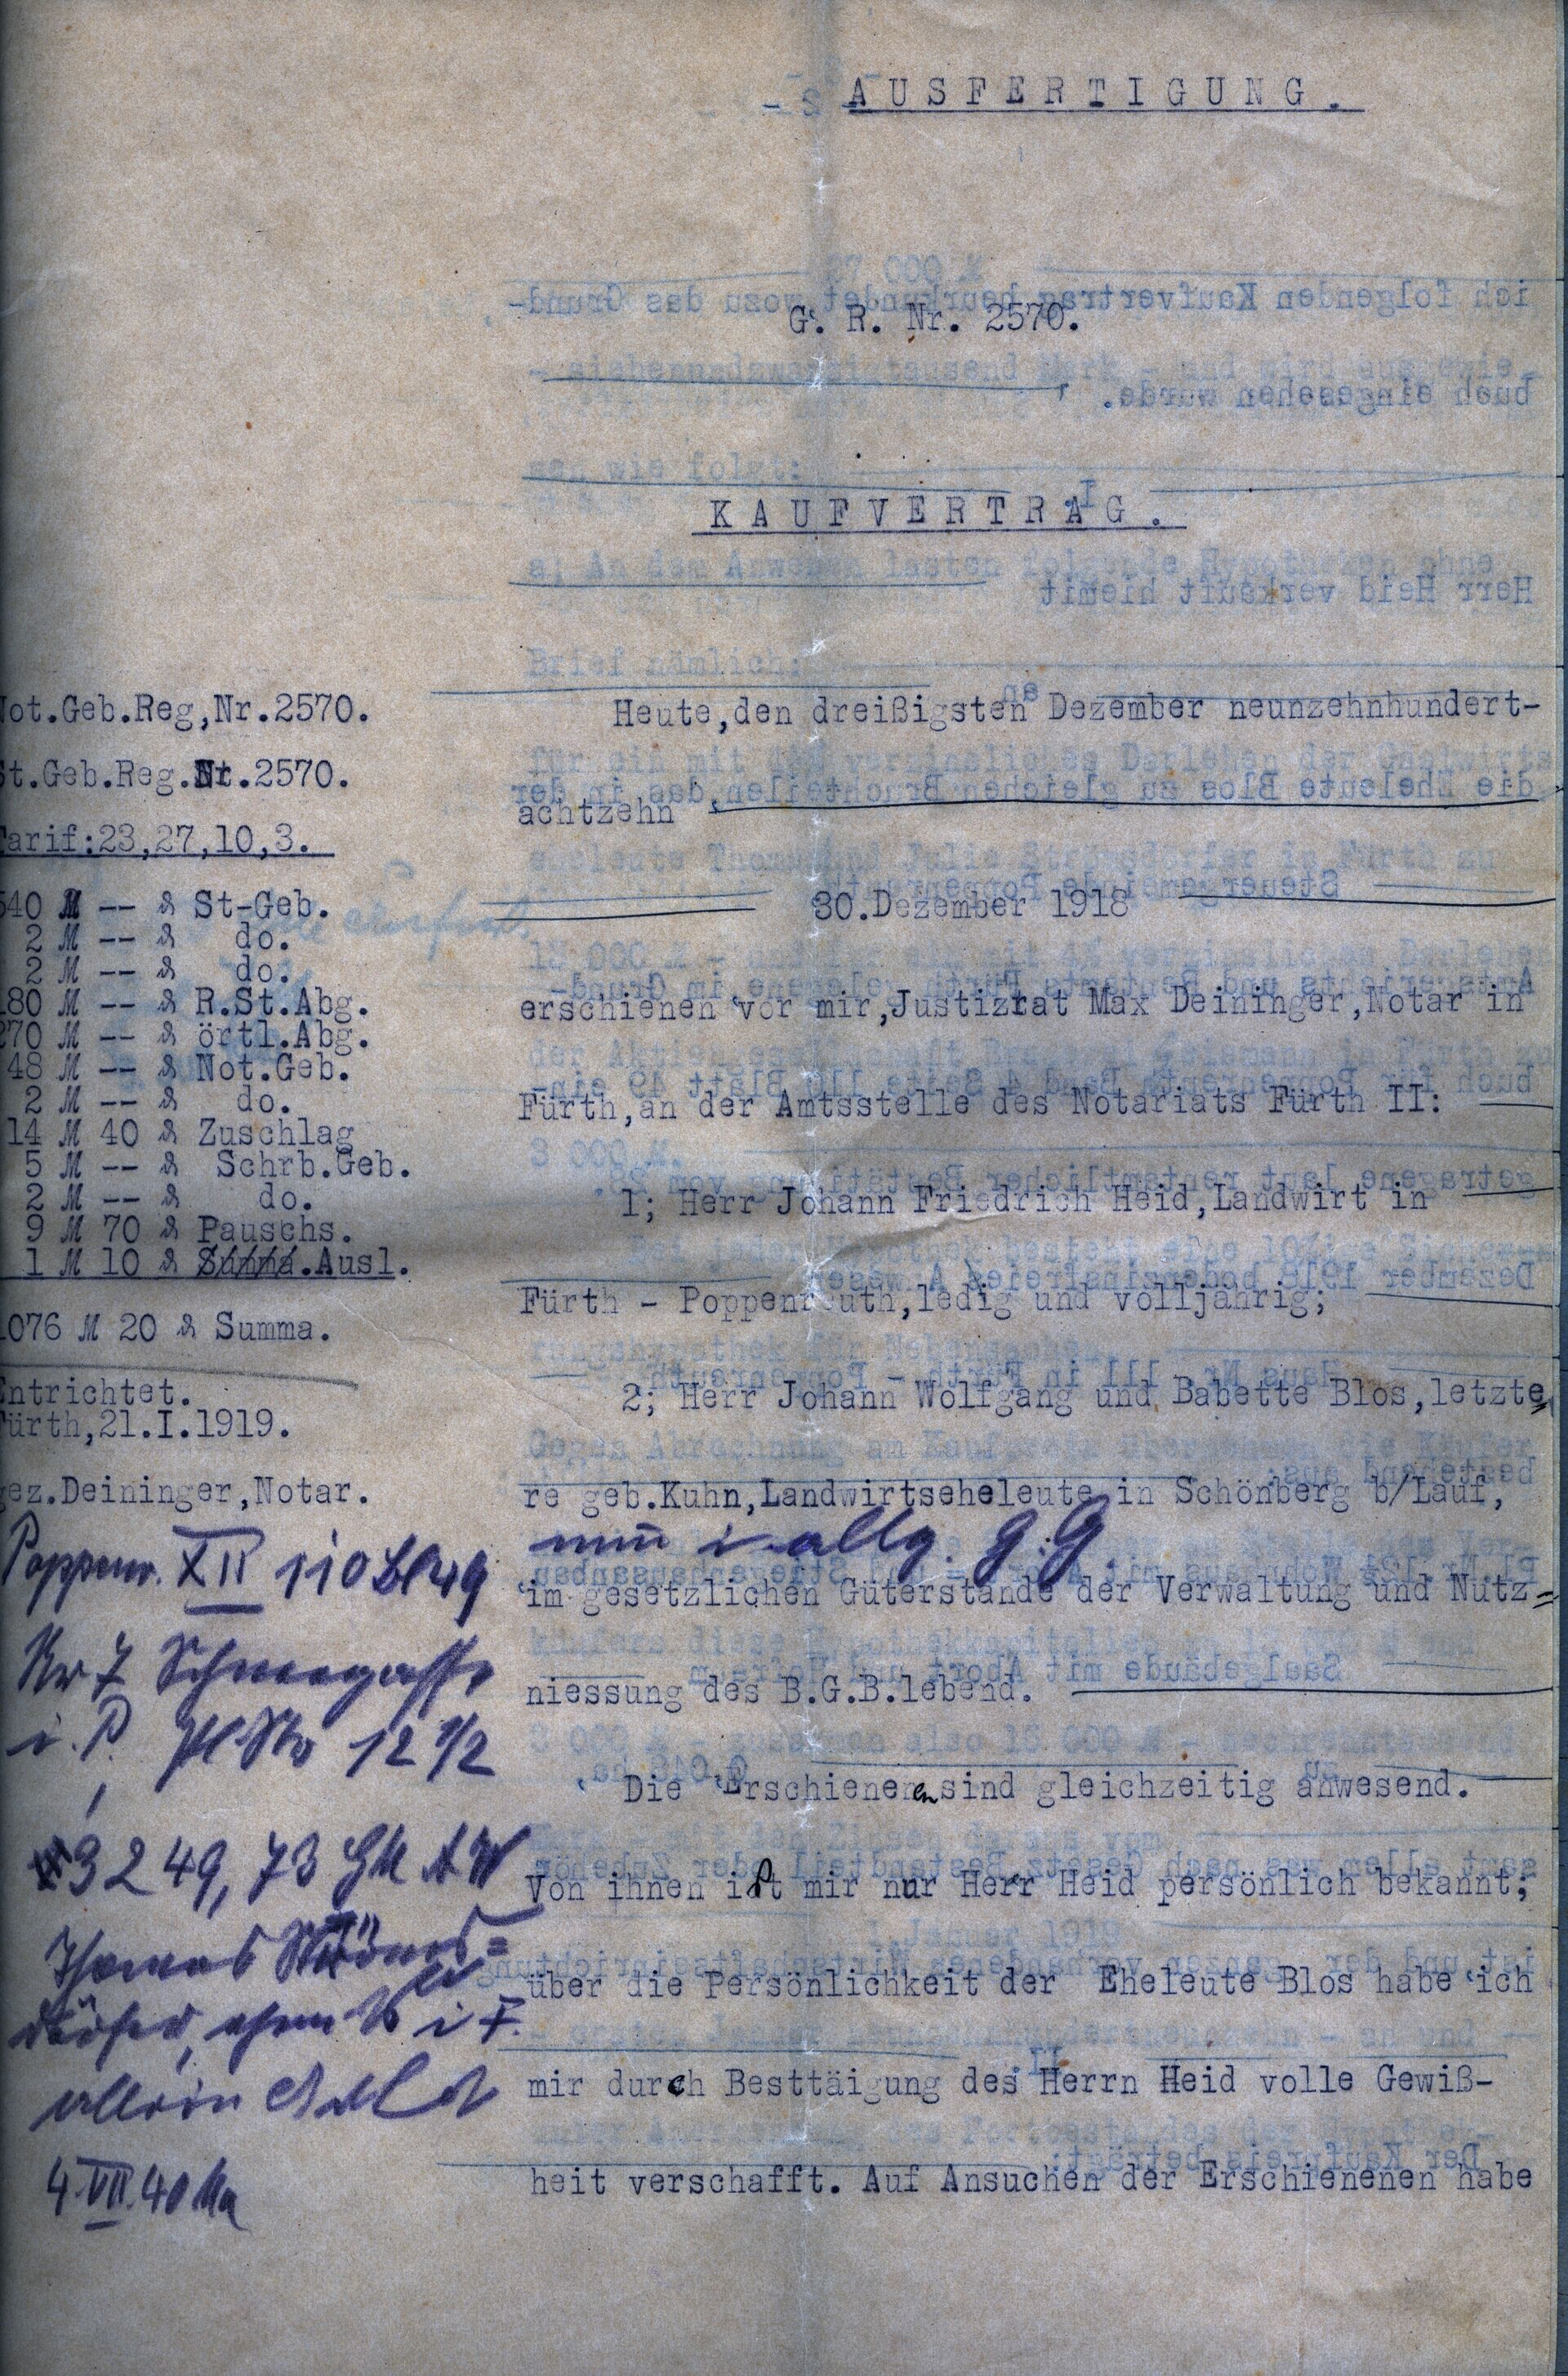 AUSFERTIGUNG.
G. R. Nr. 2570.
KAUFVERTRAG.
Not.Geb.Reg,Nr.2570.
St.Geb.Reg.Nr.2570.
Tarif:23,27,10,3.
540 M -- ₰ St-Geb.
2 M -- ₰ do.
2 M -- ₰ do.
180 M -- ₰ R.St.Abg.
270 M -- ₰ örtl.Abg.
48 M -- ₰ Not.Geb.
2 M -- ₰ do.
14 M 40 ₰ Zuschlag
5 M -- ₰ Schrb.Geb.
2 M -- ₰ do.
9 M 70 ₰ Pauschs.
1 M 10 ₰ Summa.Ausl.
1076 M 20 ₰ Summa.
Entrichtet.
Fürth,21.I.1919.
gez.Deininger,Notar.
Poppenr. XII 110 Bl 49
Nr 7 Schneegasse
i. P. Pl. No 12 1/2
3249,73 GM AW
Thomas Ströms=
dörfer,
allein
4.VII.40
Heute,den dreißigsten Dezember neunzehnhundert-
achtzehn
30.Dezember 1918
erschienen vor mir,Justizrat Max Deininger,Notar in
Fürth,an der Amtsstelle des Notariats Fürth II:
1; Herr Johann Friedrich Heid,Landwirt in
Fürth - Poppenreuth,ledig und volljährig;
2; Herr Johann Wolfgang und Babette Blos,letzte=
re geb.Kuhn,Landwirtseheleute in Schönberg b/Lauf,
nun i. allg. G. G.
im gesetzlichen Güterstande der Verwaltung und Nutz=
niessung des B.G.B.lebend.
Die Erschienenen sind gleichzeitig anwesend.
Von ihnen ist mir nur Herr Heid persönlich bekannt;
über die Persönlichkeit der Eheleute Blos habe ich
mir durch Besttäigung des Herrn Heid volle Gewiß-
heit verschafft. Auf Ansuchen der Erschienenen habe